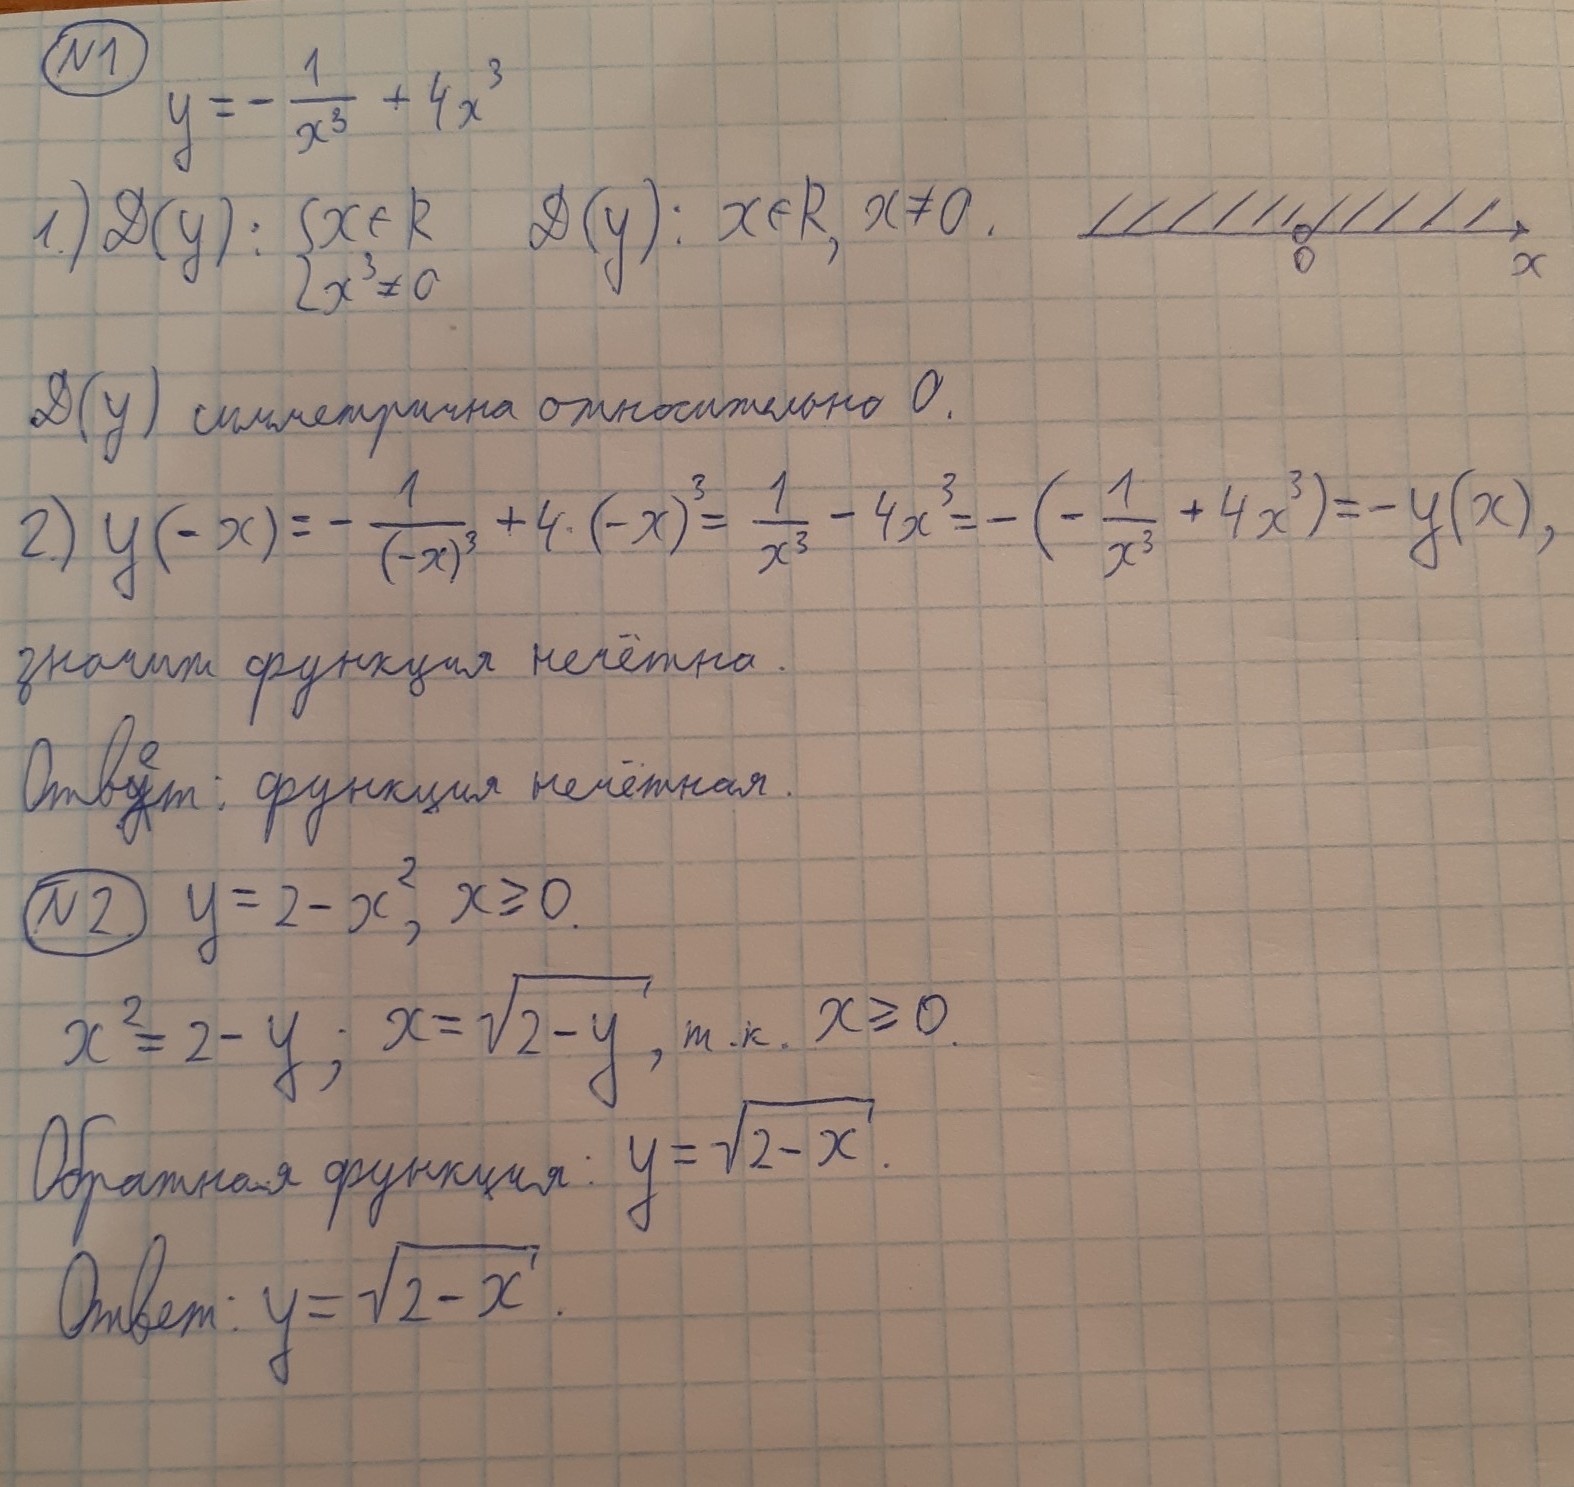 N1
y = - 1/x³ + 4x³
1.) D(y): { x ∈ R   D(y): x ∈ R, x ≠ 0.
{ x³ ≠ 0   0   x
D(y) симметрична относительно 0.
2.) y(-x) = - 1/(-x)³ + 4·(-x)³ = 1/x³ - 4x³ = -(- 1/x³ + 4x³) = -y(x),
значит функция нечётна.
Ответ: функция нечётная.
N2. y = 2 - x², x ≥ 0.
x² = 2 - y; x = √(2 - y), т.к. x ≥ 0.
Обратная функция: y = √(2 - x).
Ответ: y = √(2 - x).